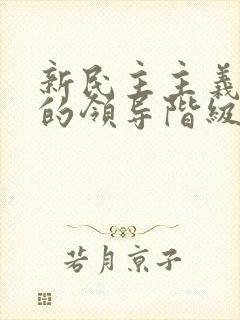 新民主主義
的領导階級
若月京子